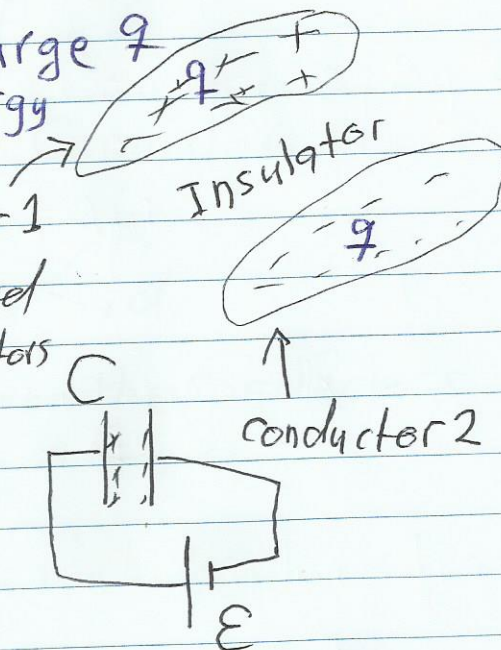 rge q
gy
q
Insulator
-1
q
ed
tors
C
conductor 2
ε